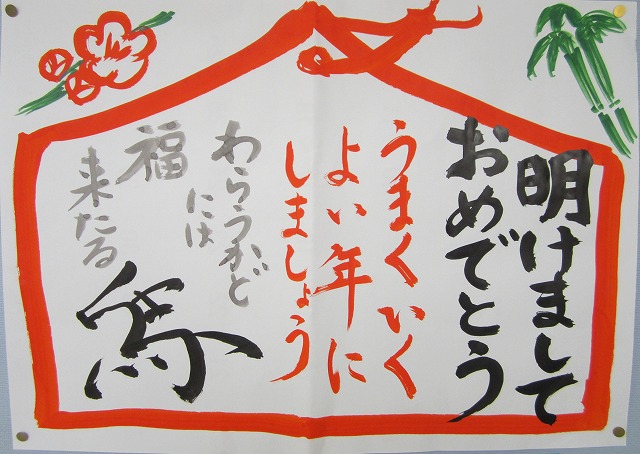 明けまして
おめでとう
うまくいく
よい年に
しましょう
わらうかど
には
福
来たる
馬